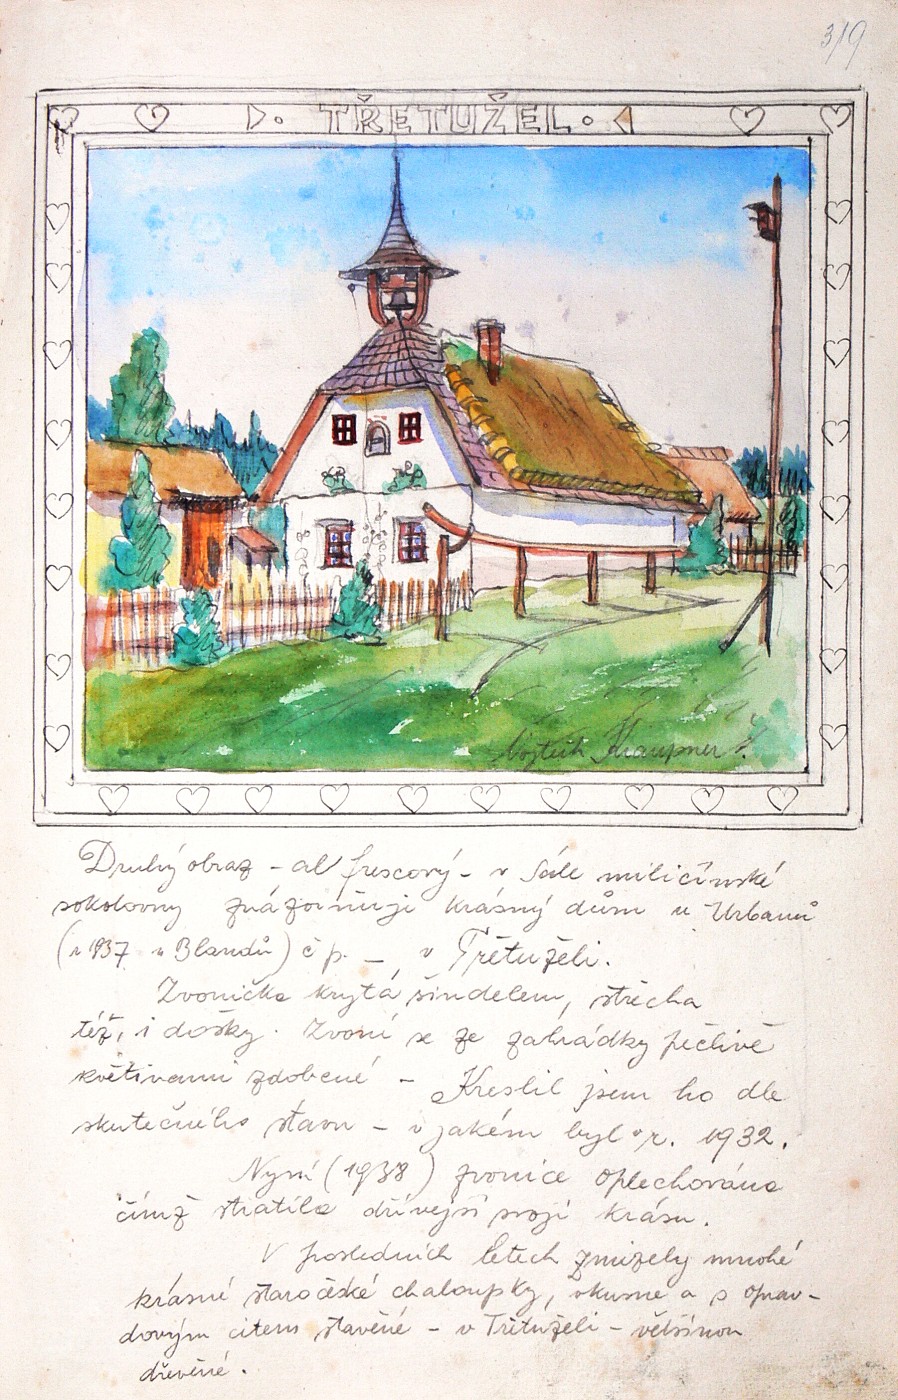 3/9
TŘETUŽEL
Vojtěch Kraupner
Druhý obraz - al frescový - v sále miličínské
sokolovny znázorňuje krásný dům u Urbanů
(r 1937 u Blandů) č p. — v Třetuželi.
Zvonička krytá šindelem, střecha
též, i došky. Zvoní se ze zahrádky pečlivě
květinami zdobené - Kreslil jsem ho dle
skutečného stavu - v jakém byl r. 1932.
Nyní (1938) zvonice oplechována
čímž ztratila dřívější svoji krásu.
V posledních letech zmizely mnohé
krásné staročeské chaloupky, vkusně a s oprav-
dovým citem stavěné - v Třetuželi - většinou
dřevěné.